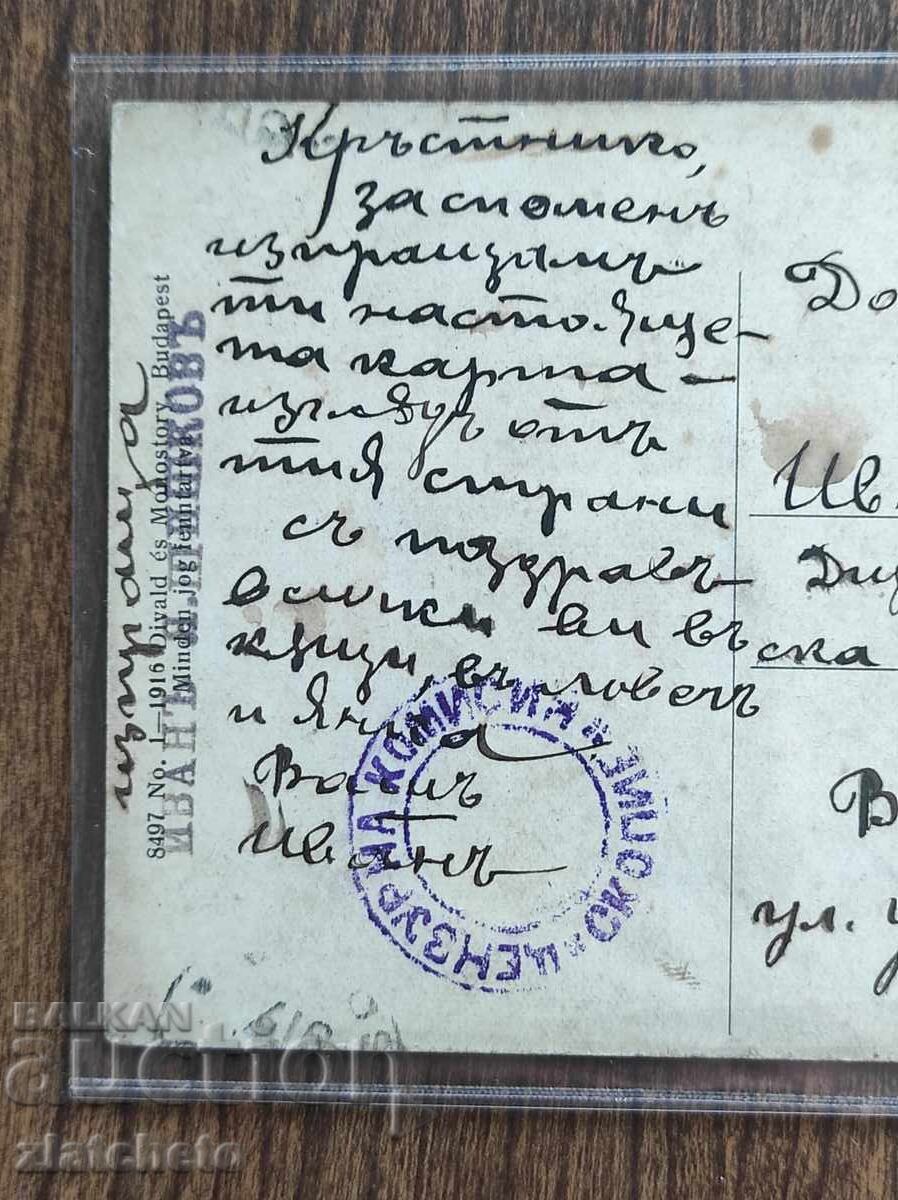 Кръстнико,
за споменъ
изпращамъ
ти настояще-
та карта -
изгледъ отъ
тия страни
съ поздравъ
всички ви въ
къщи, въ Ловечъ
и Янка
Вашъ
Иванъ
изпраща
ИВАНЪ
8497 No. 1—1916 Divald és Monostory, Budapest
Minden jog fenntartva
ЦЕНЗУРНА КОМИСИЯ СКОПИЕ
До
Ив
ска
В
ул.
BALKAN
auction
zlatcheto